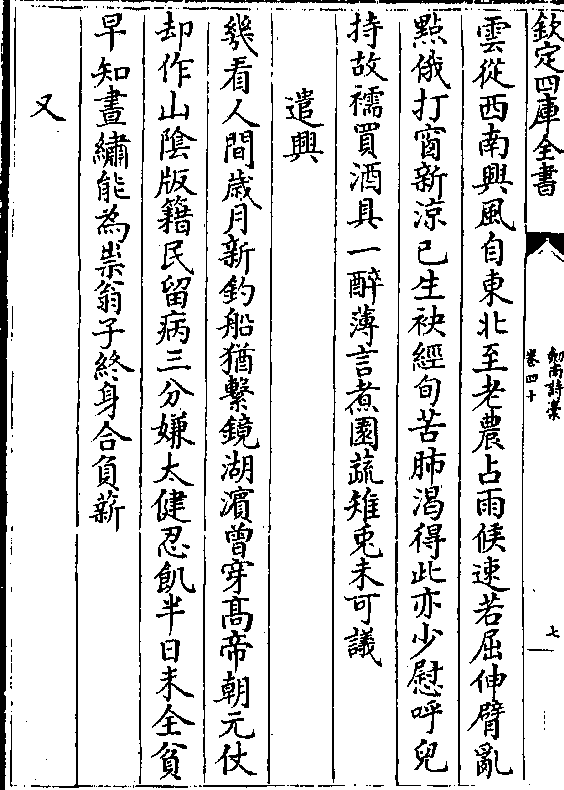 欽定四庫全書
劍南詩藁
卷四十
七
雲從西南興風自東北至老農占雨候速若屈伸臂亂
點俄打窗新涼已生袂經旬苦肺渴得此亦少慰呼兒
持故襦買酒具一醉薄言煮園蔬雉兎未可議
遣興
幾看人間歲月新釣船猶繫鏡湖濵曾穿髙帝朝元仗
却作山陰版籍民留病三分嫌太健忍飢半日未全貧
早知晝繡能為祟翁子終身合負薪
又